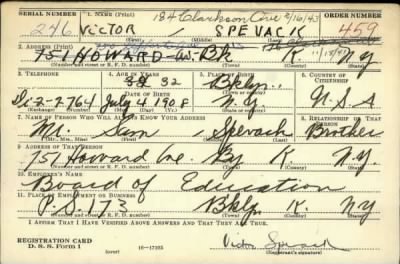 SERIAL NUMBER 1. NAME (Print) 184 Clarkson Ave 2/16/43 ORDER NUMBER
246 VICTOR SPEVACK 459
(First) (Middle) (Last)
2. ADDRESS (Print)
757 HOWARD Av. Bk K. N.Y.
(Number and street or R. F. D. number) (Town) (County) (State)
3. TELEPHONE 4. AGE IN YEARS 5. PLACE OF BIRTH 6. COUNTRY OF CITIZENSHIP
32 Bklyn.
DATE OF BIRTH
Di-2-7764 July 4 1908 N.Y. U.S.A
(Exchange) (Number) (Mo.) (Day) (Yr.) (State or country)
7. NAME OF PERSON WHO WILL ALWAYS KNOW YOUR ADDRESS 8. RELATIONSHIP OF THAT PERSON
Mr. Sam Spevack Brother
(Mr., Mrs., Miss) (First) (Middle) (Last)
9. ADDRESS OF THAT PERSON
757 Howard Ave. Bky K. N.Y.
(Number and street or R. F. D. number) (Town) (County) (State)
10. EMPLOYER'S NAME
Board of Education
11. PLACE OF EMPLOYMENT OR BUSINESS
P.S. 173 Bklyn K. NY
(Number and street or R. F. D. number) (Town) (County) (State)
I AFFIRM THAT I HAVE VERIFIED ABOVE ANSWERS AND THAT THEY ARE TRUE.
REGISTRATION CARD
D. S. S. Form 1 (over) 16—17105 Victor Spevack
(Registrant's signature)